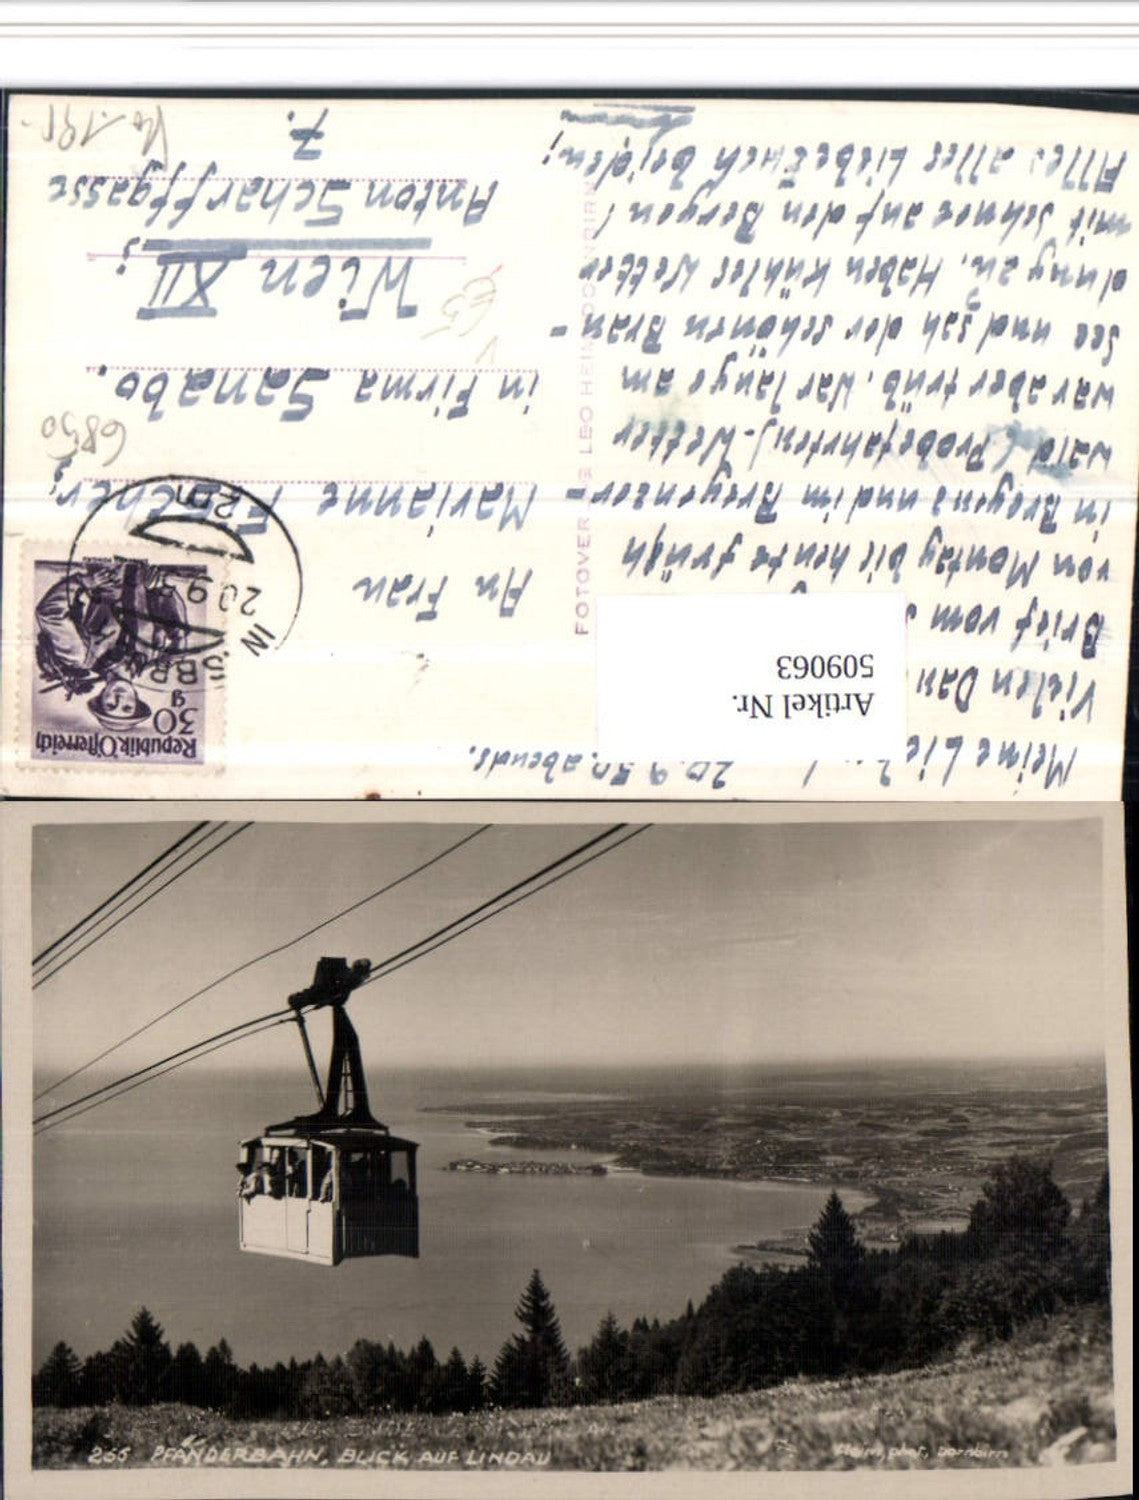 Meine Lie
20.9.50. abends.
Vielen Dan
Brief vom
von Montag bis heute früh
in Bregenz und im Bregenzer-
wald (Probefahrten). Wetter
war aber trüb. War länge am
See und sah der schönen Bran-
dung zu. Haben kühles Wetter
mit Schnee auf den Bergen!
Alles alles Liebe Euch beiden;
Artikel Nr.
509063
FOTOVER LEO HEIM DORNBIRN
Republik Österreich
30
g
20.9
An Frau
Marianne
in Firma Sanabo.
Wien XII;
Anton Scharffgasse
7.
6850
266 PFÄNDERBAHN, BLICK AUF LINDAU
Heim, phot., Dornbirn